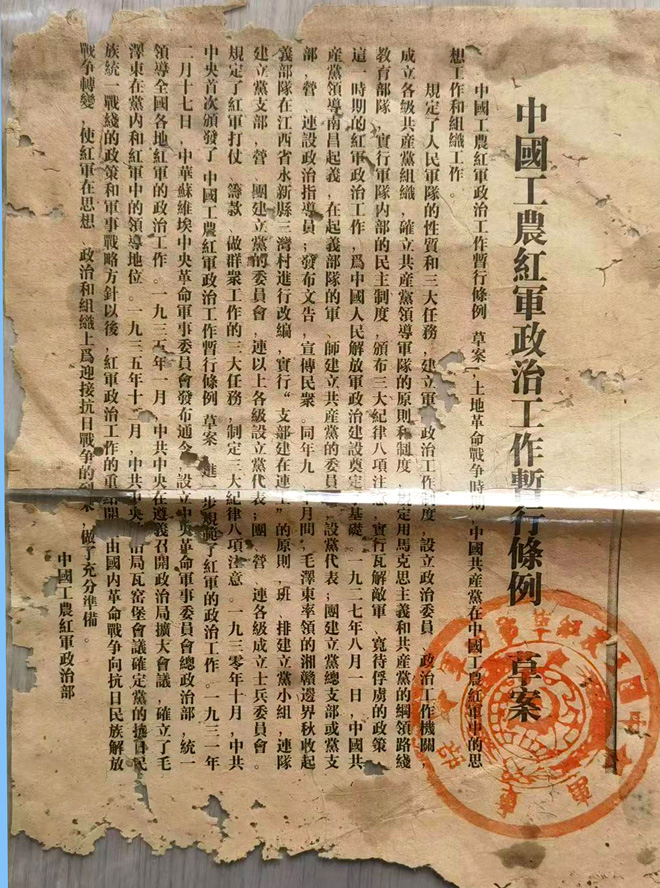 中國工農紅軍政治工作暫行條例 草案
中國工農紅軍政治工作暫行條例 草案 ,土地革命戰爭時期,中國共産黨在中國工農紅軍中的思
想工作和組織工作。
規定了人民軍隊的性質和三大任務,建立軍 政治工作制度,設立政治委員 政治工作機關
成立各級共産黨組織,確立共産黨領導軍隊的原則和制度, 定用馬克思主義和共産黨的綱領路綫
教育部隊,實行軍隊内部的民主制度,頒布三大紀律八項注意,實行瓦解敵軍、寬待俘虜的政策
這一時期的紅軍政治工作,爲中國人民解放軍政治建設奠定 基礎。一九二七年八月一日,中國共
産黨領導南昌起義,在起義部隊的軍、師建立共産黨的委員 設黨代表;團建立黨總支部或黨支
部,營、連設政治指導員;發布文告,宣傳民衆。同年九 月間,毛澤東率領的湘贛邊界秋收起
義部隊在江西省永新縣三灣村進行改編,實行“支部建在連上”的原則,班 排建立黨小組,連隊
建立黨支部,營 團建立黨的委員會,連以上各級設立黨代表,團 營 連各級成立士兵委員會。
規定了紅軍打仗、籌款、做群衆工作的三大任務,制定三大紀律八項注意。一九三零年十月,中共
中央首次頒發了 中國工農紅軍政治工作暫行條例 草案 進一步規範了紅軍的政治工作。一九三一年
二月十七日,中華蘇維埃中央革命軍事委員會發布通令,設立中央革命軍事委員會總政治部,統一
領導全國各地紅軍的政治工作。一九三五年一月,中共中央在遵義召開政治局擴大會議,確立了毛
澤東在黨内和紅軍中的領導地位。一九三五年十二月,中共中央 治局瓦窑堡會議確定黨的抗日民
族統一戰綫的政策和軍事戰略方針以後,紅軍政治工作的重 開 由國内革命戰争向抗日民族解放
戰争轉變,使紅軍在思想、政治和組織上爲迎接抗日戰争的 來,做了充分準備。
中國工農紅軍政治部